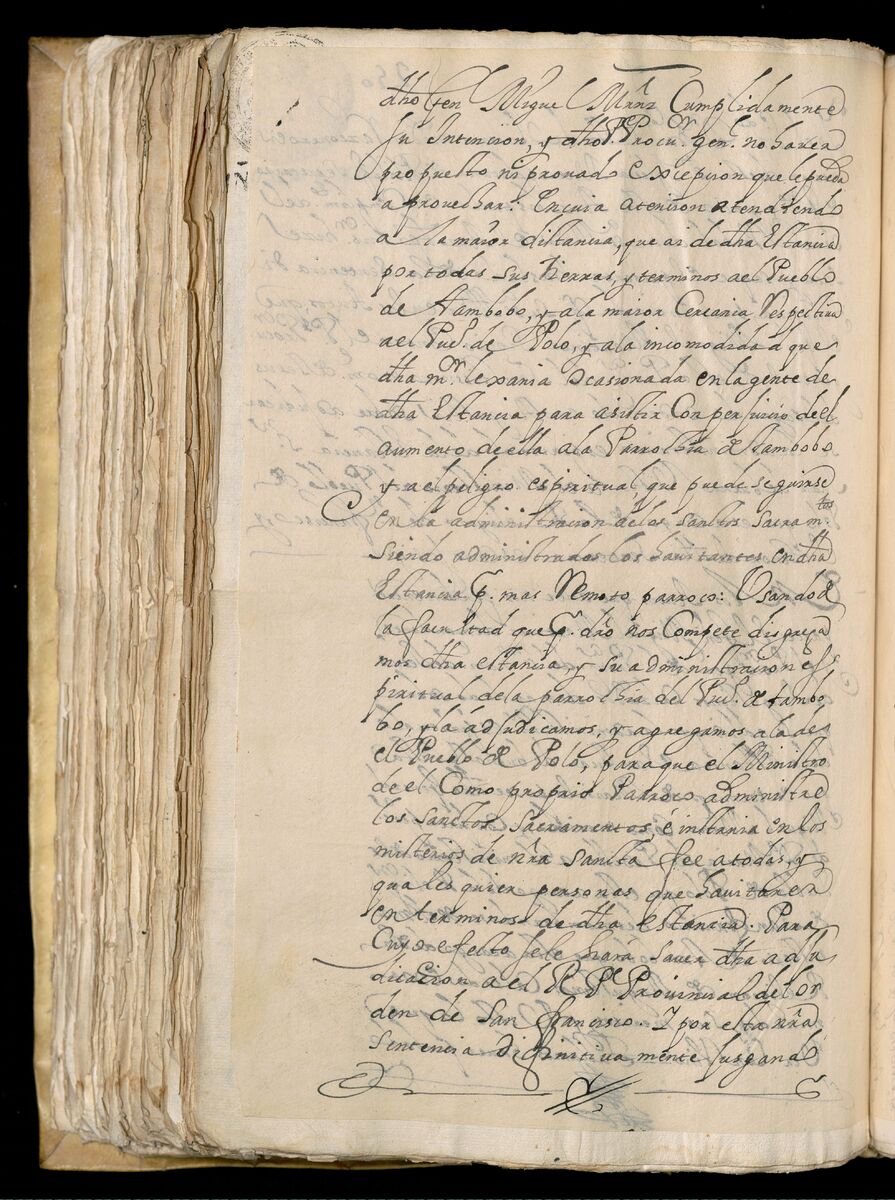 dho Gen Miguel Mrñz Cumplidamente
su Intencion, y dho Pe Procur. genl. no haver
propuesto ni provado excepcion que le pueda
aprovechar: En cuia atencion atendiendo
a la maior distancia, que ai de dha Estancia
por todas sus tierras, y terminos a el Pueblo
de Tambobo, y a la maior Cercania Respectiva
a el Pueb. de Polo, y a la incomodidad que
dha mr. lexania ocasionada en la gente de
dha Estancia para asistir Con perjuicio de el
aumento de ella a la Parrochia de tambobo
y a el peligro espiritual, que puede seguirse
en la administracion de los Sanctos Sacramtos.
siendo administrados los havitantes en dha
Estancia p. mas Remoto parroco: Usando de
la facultad que p. dro nos Compete disgrega
mos dha estancia, y su administracion es
piritual de la parrochia del Pueb. de tambo
bo, y la adjudicamos, y agregamos a la de
el Pueblo de Polo, para que el Ministro
de el Como proprio Parroco administre
los Sanctos Sacramentos, é instania en los
misterios de nra Sancta fee a todas, y
quales quier personas que havitaren
en terminos de dha estancia. Para
Cuyo efecto se le hará saver dha adju
dicacion a el R Pe Provincial del or
den de San francisco. Y por esta nra
Sentencia difinitiva mente jusgando